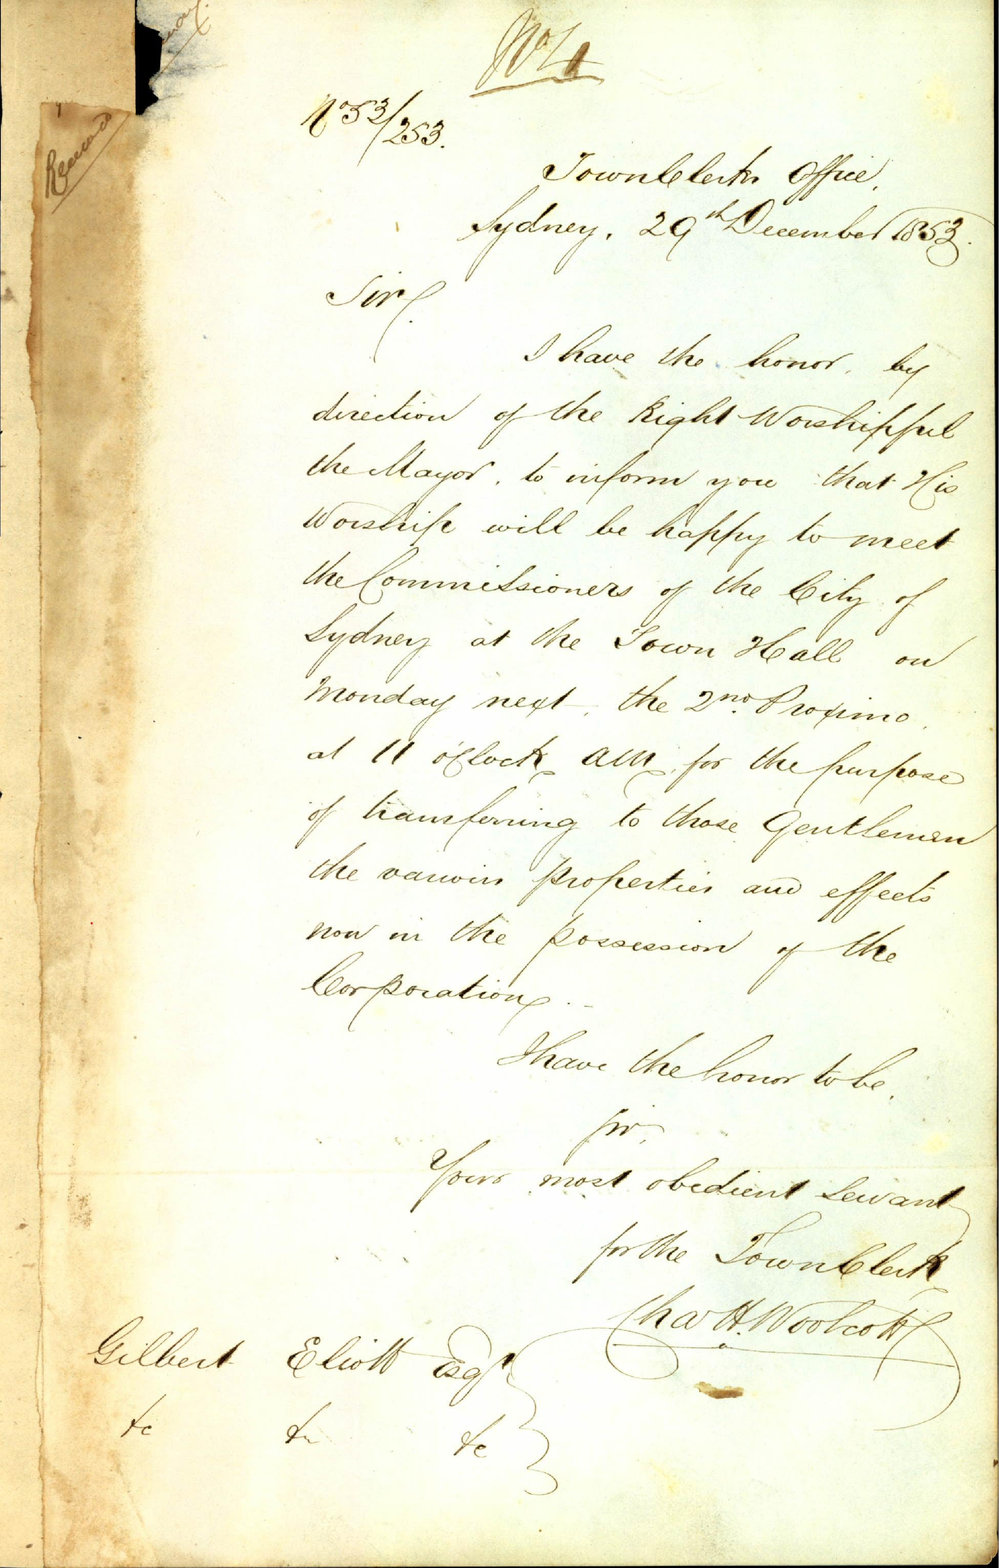 No 4
No 53/253.
Town Clerks Office,
Sydney, 29th December 1853.
Sir,
I have the honor, by
direction of the Right Worshipful
the Mayor, to inform you that His
Worship will be happy to meet
the Commissioners of the City of
Sydney at the Town Hall on
Monday next, the 2nd. Proximo,
at 11 o'Clock, AM, for the purpose
of transferring to those Gentlemen
the various properties and effects
now in the possession of the
Corporation.
I have the honor to be,
Sir,
Your most obedient Servant
for the Town Clerk
Chas H. Woolcott
Gilbert Eliott Esqr
&c &c &c